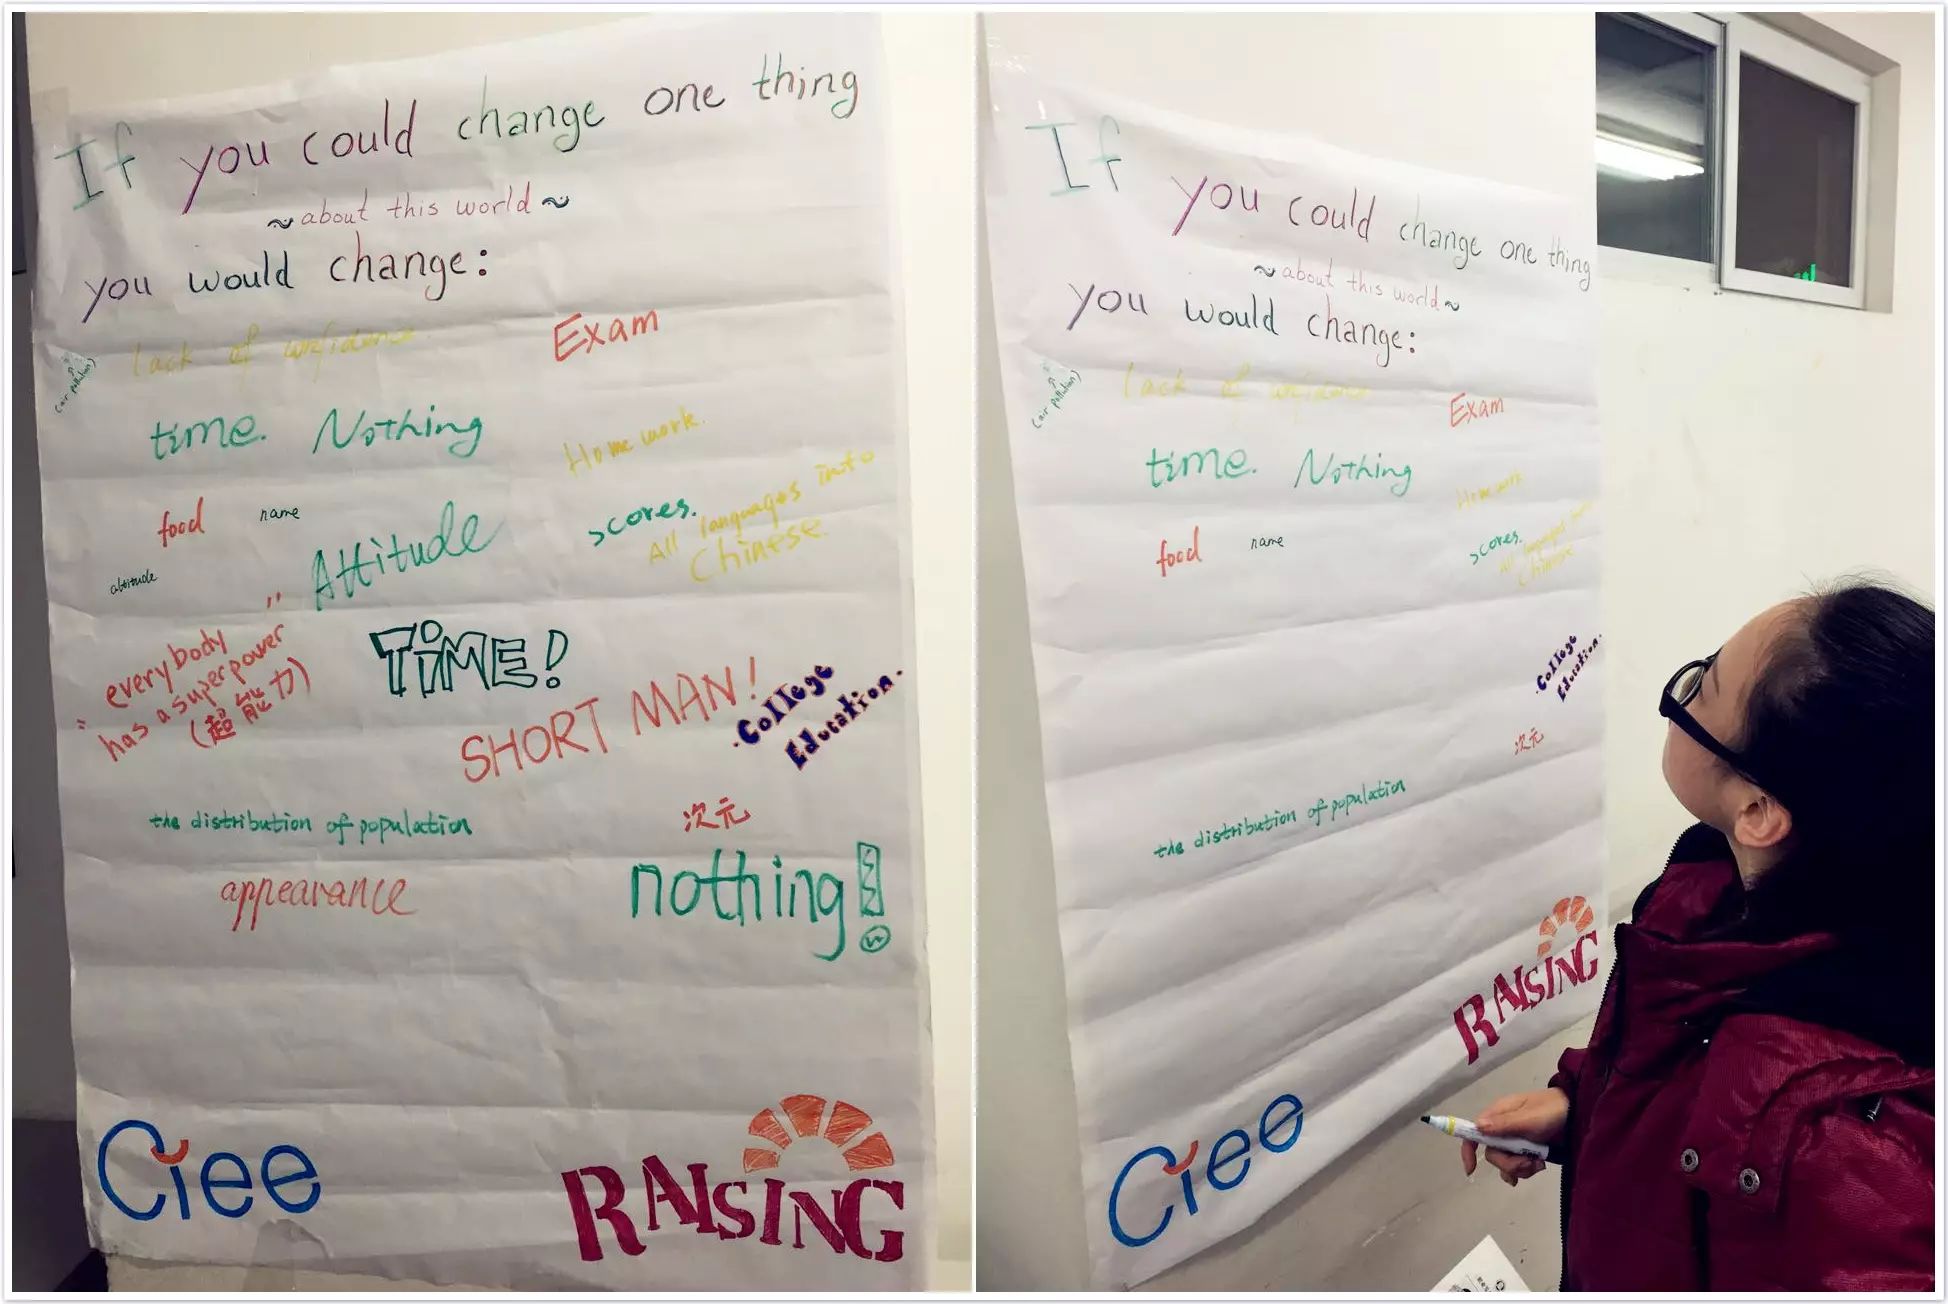 If you could change one thing
~ about this world ~
you would change:
lack of confidence
Exam
(air pollution)
time. Nothing
Home work.
food name
Attitude
scores.
All languages into
Chinese.
altitude
"everybody
has a superpower"
(超能力)
TiME!
SHORT MAN!
.College
Education.
the distribution of population
次元
appearance
nothing!
Ciee
RAISING
If you could change one thing
~ about this world ~
you would change:
lack of confidence
Exam
(air pollution)
time. Nothing
Home work
food name
scores.
All languages into
Chinese
.College
Education.
次元
the distribution of population
RAISING
Ciee